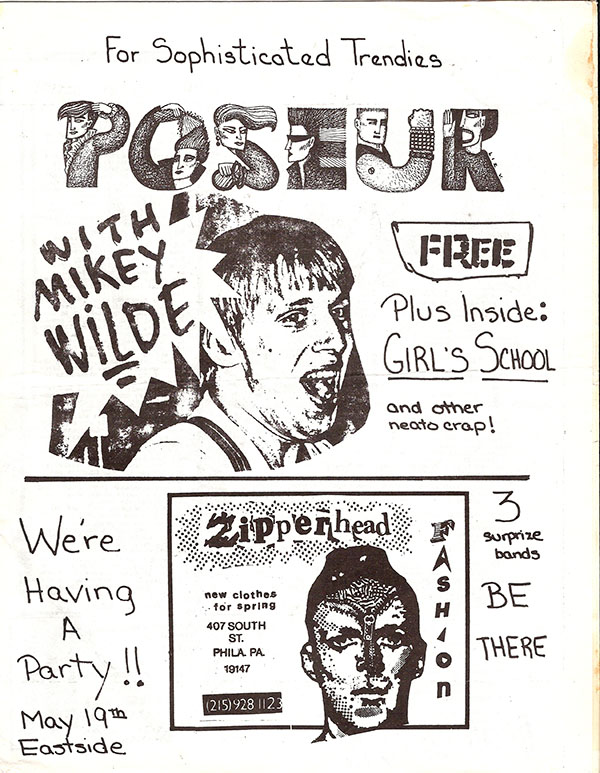 For Sophisticated Trendies
POSEUR
WITH
MIKEY
WiLDE
FREE
Plus Inside:
GIRL'S SCHOOL
and other
neato crap!
We're
Having
A
Party!!
May 19th
Eastside
Zipperhead
FASHION
new clothes
for spring
407 SOUTH
ST.
PHILA. PA.
19147
(215) 928 1123
3
surprize
bands
BE
THERE